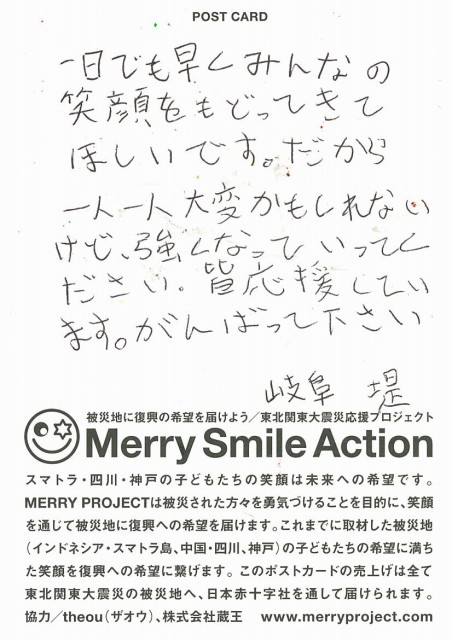 POST CARD
一日でも早くみんなの
笑顔をもどってきて
ほしいです。だから
一人一人大変かもしれない
けど、強くなっていってく
ださい。皆応援してい
ます。がんばって下さい
岐阜 堤
被災地に復興の希望を届けよう／東北関東大震災応援プロジェクト
Merry Smile Action
スマトラ・四川・神戸の子どもたちの笑顔は未来への希望です。
MERRY PROJECTは被災された方々を勇気づけることを目的に、笑顔
を通じて被災地に復興への希望を届けます。これまでに取材した被災地
（インドネシア・スマトラ島、中国・四川、神戸）の子どもたちの希望に満ち
た笑顔を復興への希望に繋げます。このポストカードの売上げは全て
東北関東大震災の被災地へ、日本赤十字社を通して届けられます。
協力／theou（ザオウ）、株式会社蔵王 www.merryproject.com